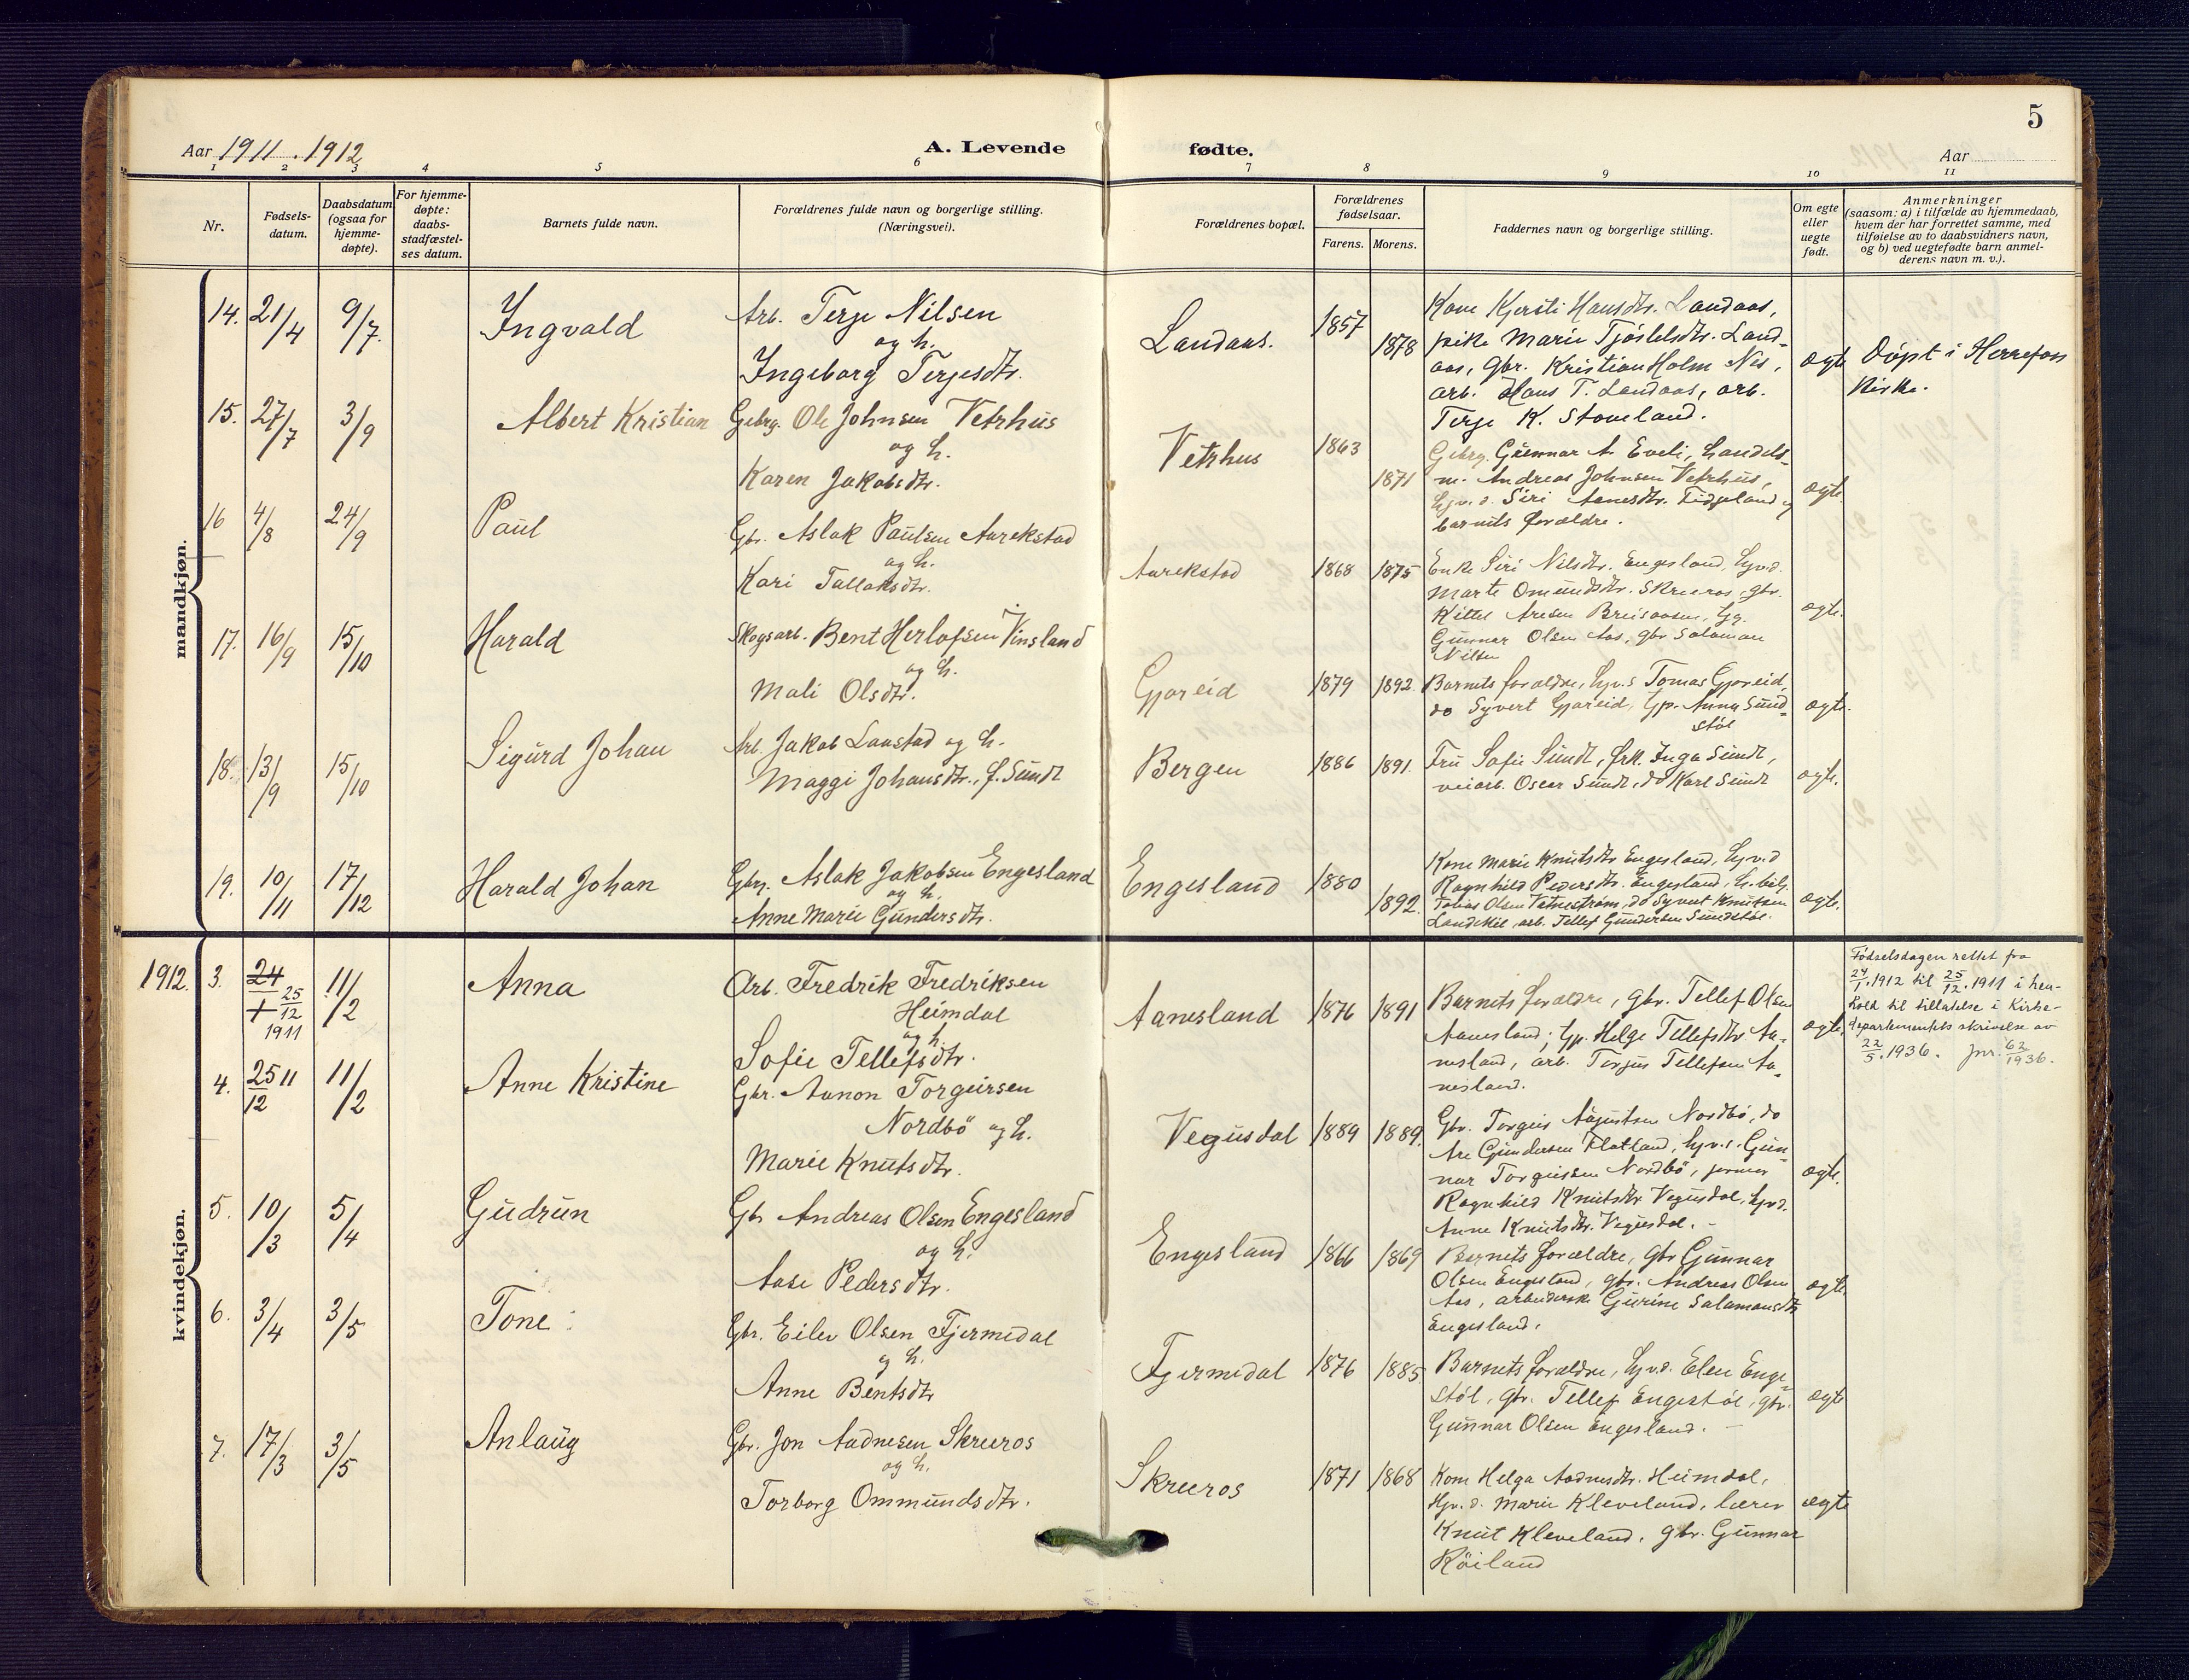 5
Aar 1911. 1912
A. Levende fødte.
Aar
1 2 3 4 5 6 7 8 9 10 11
Nr.
Fødsels-
datum.
Daabsdatum
(ogsaa for
hjemme-
døpte).
For hjemme-
døpte:
daabs-
stadfæstel-
ses datum.
Barnets fulde navn.
Forældrenes fulde navn og borgerlige stilling.
(Næringsvei).
Forældrenes bopæl.
Forældrenes
fødselsaar.
Farens. Morens.
Faddernes navn og borgerlige stilling.
Om egte
eller
uegte
født.
Anmerkninger
(saasom: a) i tilfælde av hjemmedaab,
hvem der har forrettet samme, med
tilføielse av to daabsvidners navn,
og b) ved uegtefødte barn anmel-
derens navn m. v.).
mandkjøn.
14. 21/4 9/7. Ingvald
Arb. Terje Nilsen
og h.
Ingeborg Terjesdtr.
Landaas. 1857 1878
Kone Kjersti Hansdtr. Landaas,
pike Marie Tjöstelsdtr. Land-
aas, Gbr. Kristian Holm Nes,
arb. Hans T. Landaas, arb.
Terje K. Stoveland.
ægte
Döpt i Herrefoss
Kirke.
15. 27/7 3/9 Albert Kristian
Gebrg. Ole Johnsen Vetrhus
og h.
Karen Jakobsdtr.
Vetrhus 1863 1871
Gebrg. Gunnar A. Eveli, handels-
m. Andreas Johnsen Vetrhus,
hjv.d. Siri Aanesdtr. Fidjeland og
barnets forældre.
ægte.
16 4/8 24/9 Paul
Gbr. Aslak Paulsen Aurekstad
og h.
Kari Tallaksdtr.
Aurekstad 1868 1875
Enke Siri Nilsdtr. Engesland, hjv.d.
Marte Omundsdtr. Skreros, gbr.
Kittel Aresen Breisaasen, hg.
Gunnar Olsen Aas, gbr Salaman
Nilsen
ægte.
17. 16/9 15/10 Harald
Skogsarb. Bent Herlofsen Vinsland
og h.
Mali Olsdtr.
Gjareid 1879 1892.
Barnets forældre, hjv.s Tomas Gjareid,
do Syvert Gjareid, Gp. Anna Sund-
støl
ægte.
18. 13/9 15/10 Sigurd Johan
Arb. Jakob Laastad og h.
Maggi Johansdtr., f. Sundt
Bergen 1886 1891.
Fru Sofie Sundt, frk. Inga Sundt,
veiarb. Oscar Sundt, do Karl Sundt
ægte.
19. 10/11 17/12 Harald Johan
Gbr. Aslak Jakobsen Engesland
og h.
Anne Marie Gundersdtr.
Engesland 1880 1892.
Kone Marie Knutsdtr Engesland, hjv.d
Ragnhild Pedersdtr. Engesland, h.
Tobias Olsen Vatnestrøm, do Syvert Knutsen
arb. Tellef Gundersen Sundstøl.
ægte.
kvindekjøn.
1912. 3. 24/1 25/12 1911 11/2 Anna
Arb. Fredrik Fredriksen
Heimdal
og h.
Sofie Tellefsdtr.
Aanesland 1876 1891
Barnets forældre, gbr. Tellef Olsen
Aanesland; Gp. Helge Tellefsdtr Aa-
nesland, arb. Terjus Tellefsen Aa-
nesland.
ægte.
Fødselsdagen rettet fra
24/1.1912 til 25/12.1911 i hen-
hold til tillatelse i Kirke-
departementets skrivelse av
22/5.1936. jnr. 62/1936.
4. 25/12 11 11/2 Anne Kristine
Gbr. Aanon Torgeirsen
Nordbö og h.
Marie Knutsdtr.
Vegusdal 1889 1889.
Gbr. Torgeis Augustsen Nordbö, do
Are Gundersen Flatland, hjv.s. Gun-
nar Torgeissen Nordbö,
Ragnhild Knutsdtr Vegusdal, hjv.d.
Anne Knutsdtr. Vegusdal. -
ægte.
5. 10/3 5/4 Gudrun
Gbr Andreas Olsen Engesland
og h.
Aase Pedersdtr.
Engesland 1866 1869
Barnets forældre, gbr Gunnar
Olsen Engesland, gbr. Andreas Olsen
Aas, arbeiderske Gurine Salamonsdtr
Engesland.
ægte.
6. 3/4 3/5 Tone
Gbr. Eilev Olsen Fjermedal
og h.
Anne Bentsdtr
Fjermedal 1876 1885
Barnets forældre, hjv.d. Elen Enge-
støl, gbr. Tellef Engestøl, gbr.
Gunnar Olsen Engesland. -
ægte
7. 17/3 3/5 Anlaug
Gbr. Jon Aadnesen Skreros
og h.
Torborg Ommundsdtr.
Skreros 1871 1868
Kone Helga Aadnesdtr. Heimdal,
Hjv.d. Marie Kleveland, lærer
Knut Kleveland, gbr. Gunnar
Röiland
ægte